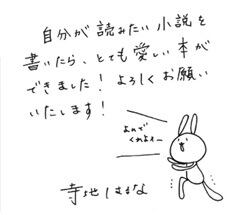 自分が読みたい小説を
書いたら、とても愛しい本が
できました！よろしくお願い
いたします！
よんで
くれよイー
寺地はるな